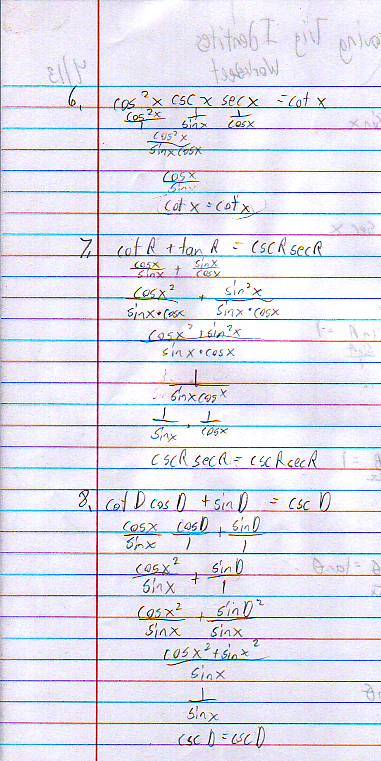 6. cos²x cscx secx = cot x
cos²x/1 1/sinx 1/cosx
cos²x/sinxcosx
cosx/sinx
cot x = cot x
7. cotR + tanR = cscRsecR
cosx/sinx + sinx/cosx
cosx²/sinx•cosx + sin²x/sinx•cosx
cosx²+sin²x/sinx•cosx
1/sinxcosx
1/sinx • 1/cosx
cscR secR = cscRsecR
8. cotDcosD + sinD = cscD
cosx/sinx cosD/1 + sinD/1
cosx²/sinx + sinD/1
cosx²/sinx + sinD²/sinx
cosx²+sinx²/sinx
1/sinx
cscD = cscD